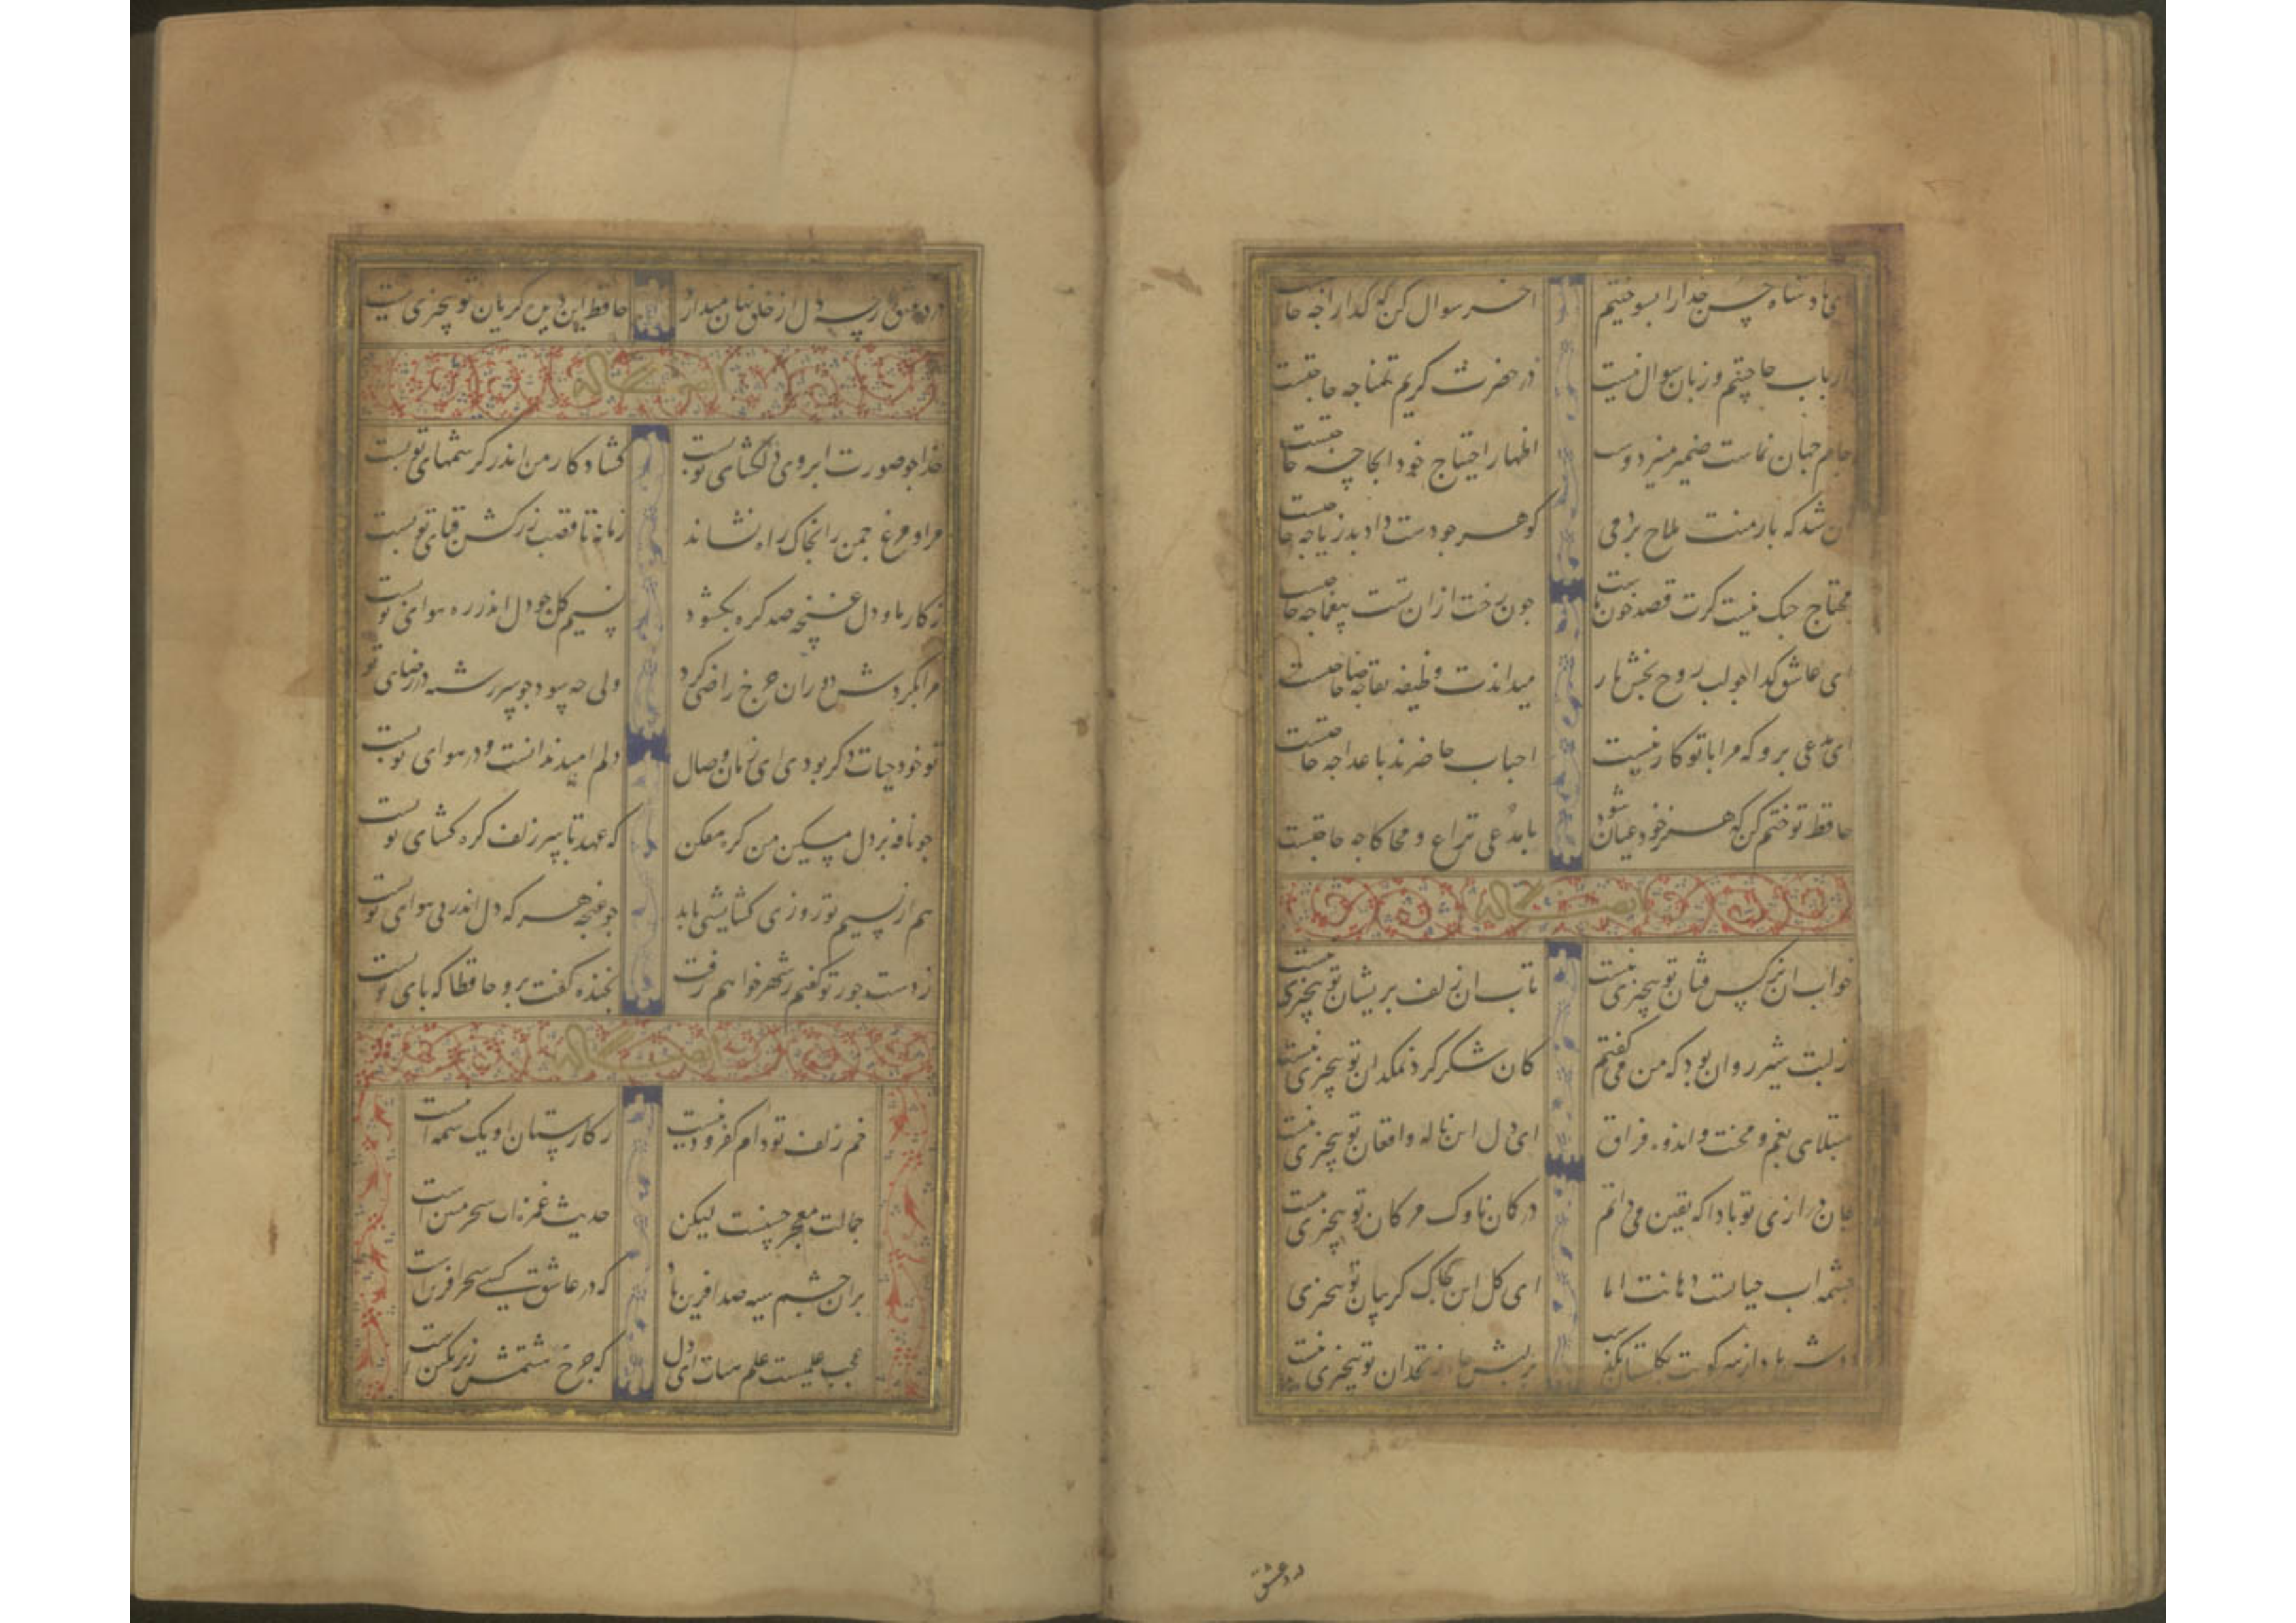 ای پادشاه حسن خدا را بسوختیم اخر سوال کن که کدا را جه حاجتست
ارباب حاجتیم و زبان سوال نیست در حضرت کریم تمنا جه حاجتست
جام جهان نماست ضمیر منیر دوست اظهار احتیاج خود انجا چه حاجتست
ان شد که بار منت ملاح بردمی کوهر جو دست داد بدریا جه حاجتست
محتاج جنک نیست کرت قصد خون ماست جون رخت ازان تست بیغما جه حاجتست
ای عاشق کدا جو لب روح بخش یار میداندت وظیفه تقاضا جه حاجتست
ای مدعی برو که مرا با تو کار نیست احباب حاضرند باعدا جه حاجتست
حافظ تو ختم کن که هنر خود عیان شود با مدعی نزاع و محاکا جه حاجتست
خواب ان نرکس فتان تو بیچیزی نیست تاب ان زلف بریشان تو بیچیزی نیست
از لبت شیر روان بود که من می کفتم کان شکر کرد نمکدان تو بیچیزی نیست
مبتلای بغم و محنت و اندوه فراق ای دل این ناله و افغان تو بیچیزی نیست
جان درازی تو بادا که یقین می دانم در کمان ناوک مژکان تو بیچیزی نیست
چشمه اب حیاتست دهانت اما ای کل این چاک کریبان تو بیچیزی
دوش باد از سر کویت بکلستان بکذشت زنخدان تو بیچیزی نیست
درد عشق
درد عشق ارچه دل از خلق نهان میدارد حافظ این دیده کریان تو بیچیزی نیست
خدا جو صورت ابروی دلکشای تو بست کشاد کار من اندر کرشمهای تو بست
مرا و مرغ چمن را بخاک راه نشاند زمانه تا قصب زرکش قبای تو بست
ز کار ما و دل غنچه صد کره بکشود نسیم کل جو دل اندر ره هوای تو بست
مرا بکردش دوران چرخ راضی کرد ولی چه سود جو سر رشته در رضای تو
تو خود حیات دکر بودی ای زمان وصال دلم امید ندانست و در هوای تو بست
جو نافه بر دل مسکین من کره مفکن که عهد با سر زلف کره کشای تو بست
هم از نسیم تو روزی کشایشی یابد جو غنجه هر که دل اندر پی هوای تو بست
ز دست جور تو کفتم ز شهر خواهم رفت بخنده کفت برو حافظا که پای تو بست
خم زلف تو دام کفر و دینست ز کارستان او یک شمه اینست
جمالت معجز حسنست لیکن حدیث غمزه ات سحر مبین است
بران چشم سیه صد افرین باد که در عاشق کشی سحر افرین است
عجب علمیست علم هیات ای دل که چرخ هشتمش زیر زمین است